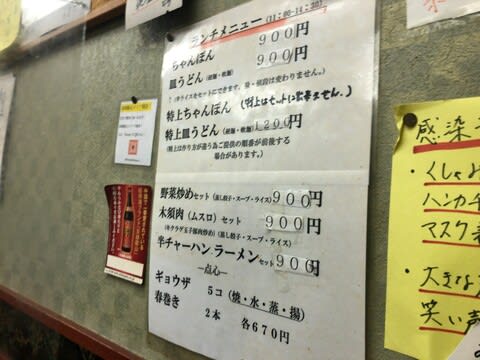 ランチメニュー(11:00-14:30)
ちゃんぽん 900円
皿うどん(細麺・軟麺) 900円
特上ちゃんぽん (特上はセットに出来ません。)
特上皿うどん(細麺・軟麺) 1200円
(特上は作り方が違う為ご提供の順番が前後する
場合があります。)
野菜炒めセット(蒸し餃子・スープ・ライス) 900円
木須肉(ムスロ)セット 900円
(キクラゲ玉子豚肉炒め) (蒸し餃子・スープ・ライス)
半チャーハン、ラーメンセット 900円
―点心―
ギョウザ 5コ(焼・水・蒸・揚)
春巻き 2本 各670円
感染
・くしゃみ
ハンカチ
マスク
・大きな
笑い声